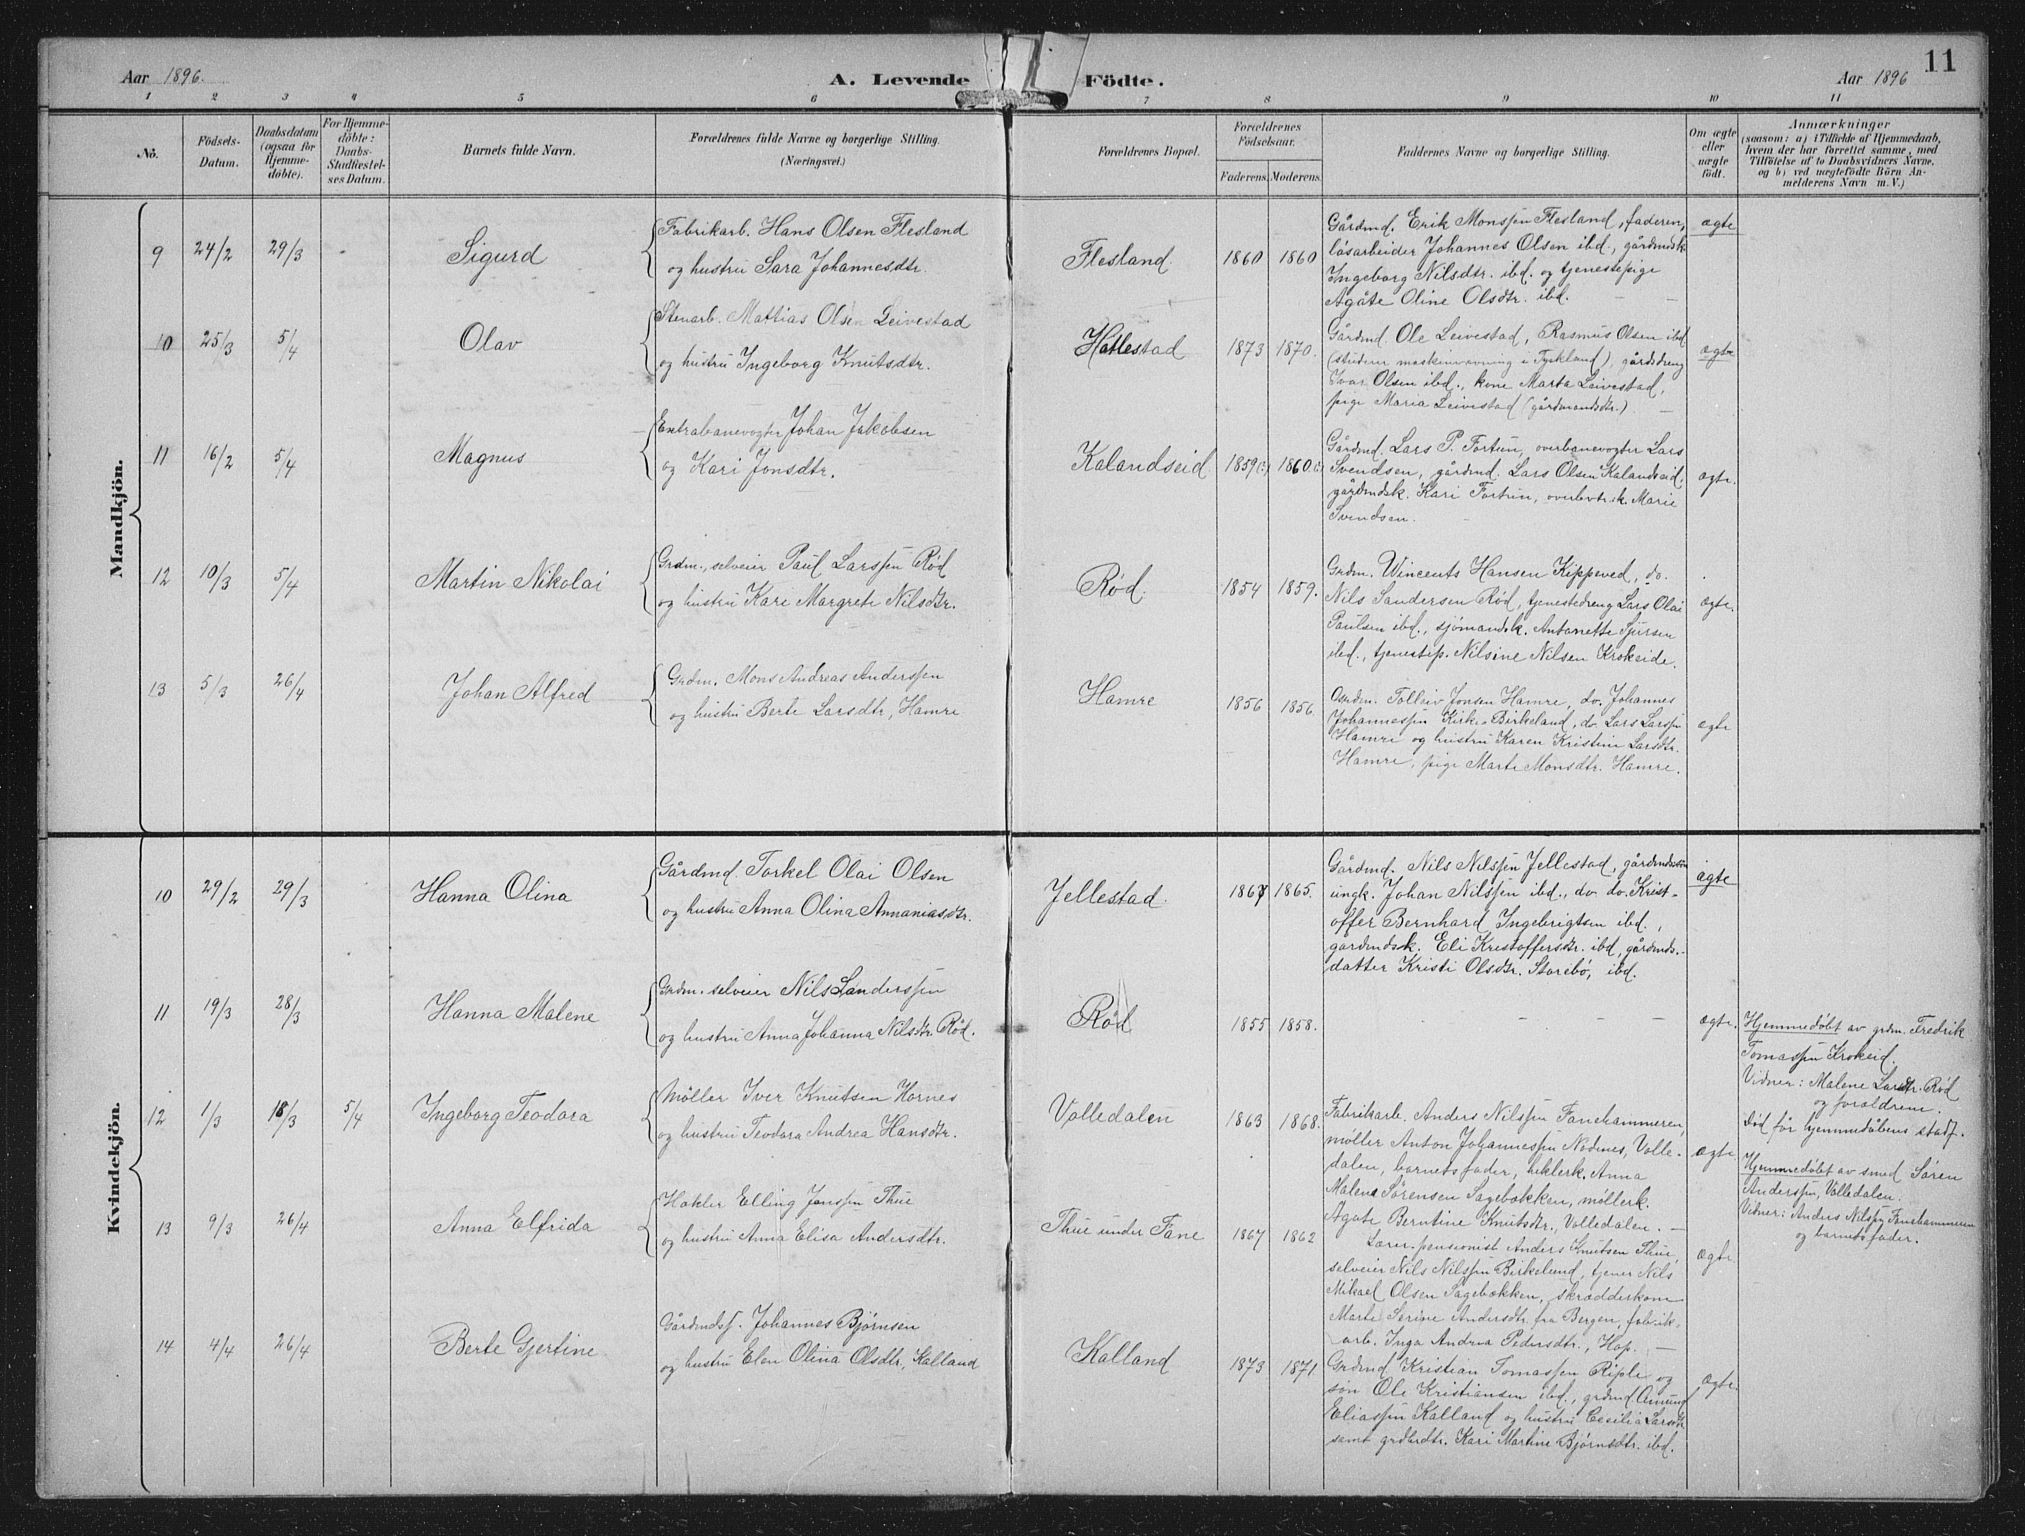 11
Aar 1896.
A. Levende Födte.
Aar 1896
1 2 3 4 5 6 7 8 9 10 11
No.
Födsels-
Datum.
Daabsdatum
(ogsaa for
Hjemme-
döbte).
For Hjemme-
döbte:
Daabs-
Stadfæstel-
ses Datum.
Barnets fulde Navn.
Forældrenes fulde Navne og borgerlige Stilling.
(Næringsvei.)
Forældrenes Bopæl.
Forældrenes
Födselsaar.
Faderens. Moderens.
Faddernes Navne og borgerlige Stilling.
Om ægte
eller
uægte
födt.
Anmærkninger
(saasom: a) i Tilfælde af Hjemmedaab,
hvem der har forrettet samme, med
Tilföielse af to Daabsvidners Navne,
og b) ved uægtefödte Börn An-
melderens Navn m. V.)
Mandkjön.
9 24/2 29/3 - Sigurd
Fabrikarb. Hans Olsen Flesland
og hustru Sara Johannesdtr.
Flesland 1860 1860
Gårdmd. Erik Monssen Flesland, faderen,
løsarbeider Johannes Olsen ibd., gårdmdsk
Ingeborg Nilsdtr. ibd. og tjenestepige
Agåte Oline Olsdtr. ibd.
ægte
10 25/3 5/4 Olav
Stenarb. Mattias Olsen Leivestad
og hustru Ingeborg Knutsdtr.
Hatlestad 1873 1870.
Gårdmd. Ole Leivestad, Rasmus Olsen ibd
(studerer maskinvævning i Tyskland), gårdsdreng
Ivar Olsen ibd., kone Marta Leivestad,
pige Maria Leivestad (gårdmandsdtr.)
ægte
11 16/2 5/4 Magnus
Extrabanevogter Johan Jakobsen
og Kari Jonsdtr.
Kalandseid 1859 1860
Gårdmd. Lars P. Fortun, overbanevogter Lars
Svendsen, gårdmd. Lars Olsen Kalandseid,
gårdmdsk. Kari Fortun, overbvtr.k. Marie
Svendsen.
ægte.
12 10/3 5/4 Martin Nikolai
Grdm., selveier Paul Larssen Rød
og hustru Kari Margrete Nilsdtr.
Rød. 1854 1859.
Grdm. Wincents Hansen Kippeved, do.
Nils Sandersen Rød, tjenestedreng Lars Olai
Paulsen ibd., sjømandsk. Antonette Sjursen
ibd., tjenestep. Nilsine Nilsen Krokeide.
ægte.
13 5/3 26/4 Johan Alfred
Grdm. Mons Andreas Anderssen
og hustru Berte Larsdtr, Hamre
Hamre 1856 1856.
Grdm. Folleiv Jonsen Hamre, do. Johannes
Johannessen Kirke-Birkeland, do. Lars Larssen
Hamre og hustru Karen Kristine Larsdtr.
Hamre, pige Marte Monsdtr. Hamre.
ægte
Kvindekjön.
10 29/2 29/3 Hanna Olina
Gårdmd. Torkel Olai Olsen
og hustru Anna Olina Annaniasdtr.
Jellestad. 1867 1865.
Gårdmd. Nils Nilssen Jellestad, gårdmdssøn
ungk. Johan Nilssen ibd., do. do. Krist-
offer Bernhard Ingebrigtsen ibd.,
gårdmdsk. Eli Kristoffersdtr. ibd, gårdmds.-
datter Kristi Olsdtr. Storebø, ibd.
ægte
11 19/3 28/3 Hanna Malene
Grdm. selveier Nils Sanderssen
og hustru Anna Johanna Nilsdtr. Rød.
Rød 1855 1858.
- - - - -
ægte.
Hjemmedøbt av grdm. Fredrik
Tomassen Krokeid.
Vidner: Malene Larsdtr. Rød
og forældrene.
Død før hjemmedåbens stadf.
12 1/3 18/3 5/4 Ingeborg Teodora
Møller Iver Knutsen Hornes
og hustru Teodora Andrea Hansdtr.
Volledalen 1863 1868.
Fabrikarb. Anders Nilssen Fanehammeren,
møller Anton Johannessen Nødenes, Volle-
dalen, barnets fader, heklerk. Anna
Malene Sørensen Sagebækken, møllerk.
Agate Berntine Knutsdtr., Volledalen. -
ægte
Hjemmedøbt av smed Søren
Anderssen, Volledalen.
Vidner: Anders Nilssen Fanehammeren
og barnets fader.
13 9/3 26/4 Anna Elfrida
Hækler Elling Janssen Thue
og hustru Anna Elisa Andersdtr.
Thue under Fane 1867 1862
Lærer-pensionist Anders Knutsen Thue,
selveier Nils Nilssen Birkelund, tjener Nils
Mikael Olsen Sagebækken, skrædderkone
Marte Serine Andersdtr. fra Bergen, fabrik-
arb. Inga Andrea Pedersdtr., Hop. -
ægte
14 4/4 26/4 Berte Gjertine
Gårdmdss. Johannes Bjørnsen
og hustru Elen Olina Olsdtr, Kalland
Kalland 1873 1871.
Grdmd. Kristian Tomassen Riple og
søn Ole Kristiansen ibd., grdmd Amund
Eliassen Kalland og hustru Cecilia Larsdtr
samt Kari Martine Bjørnsdtr. ibd.
ægte.